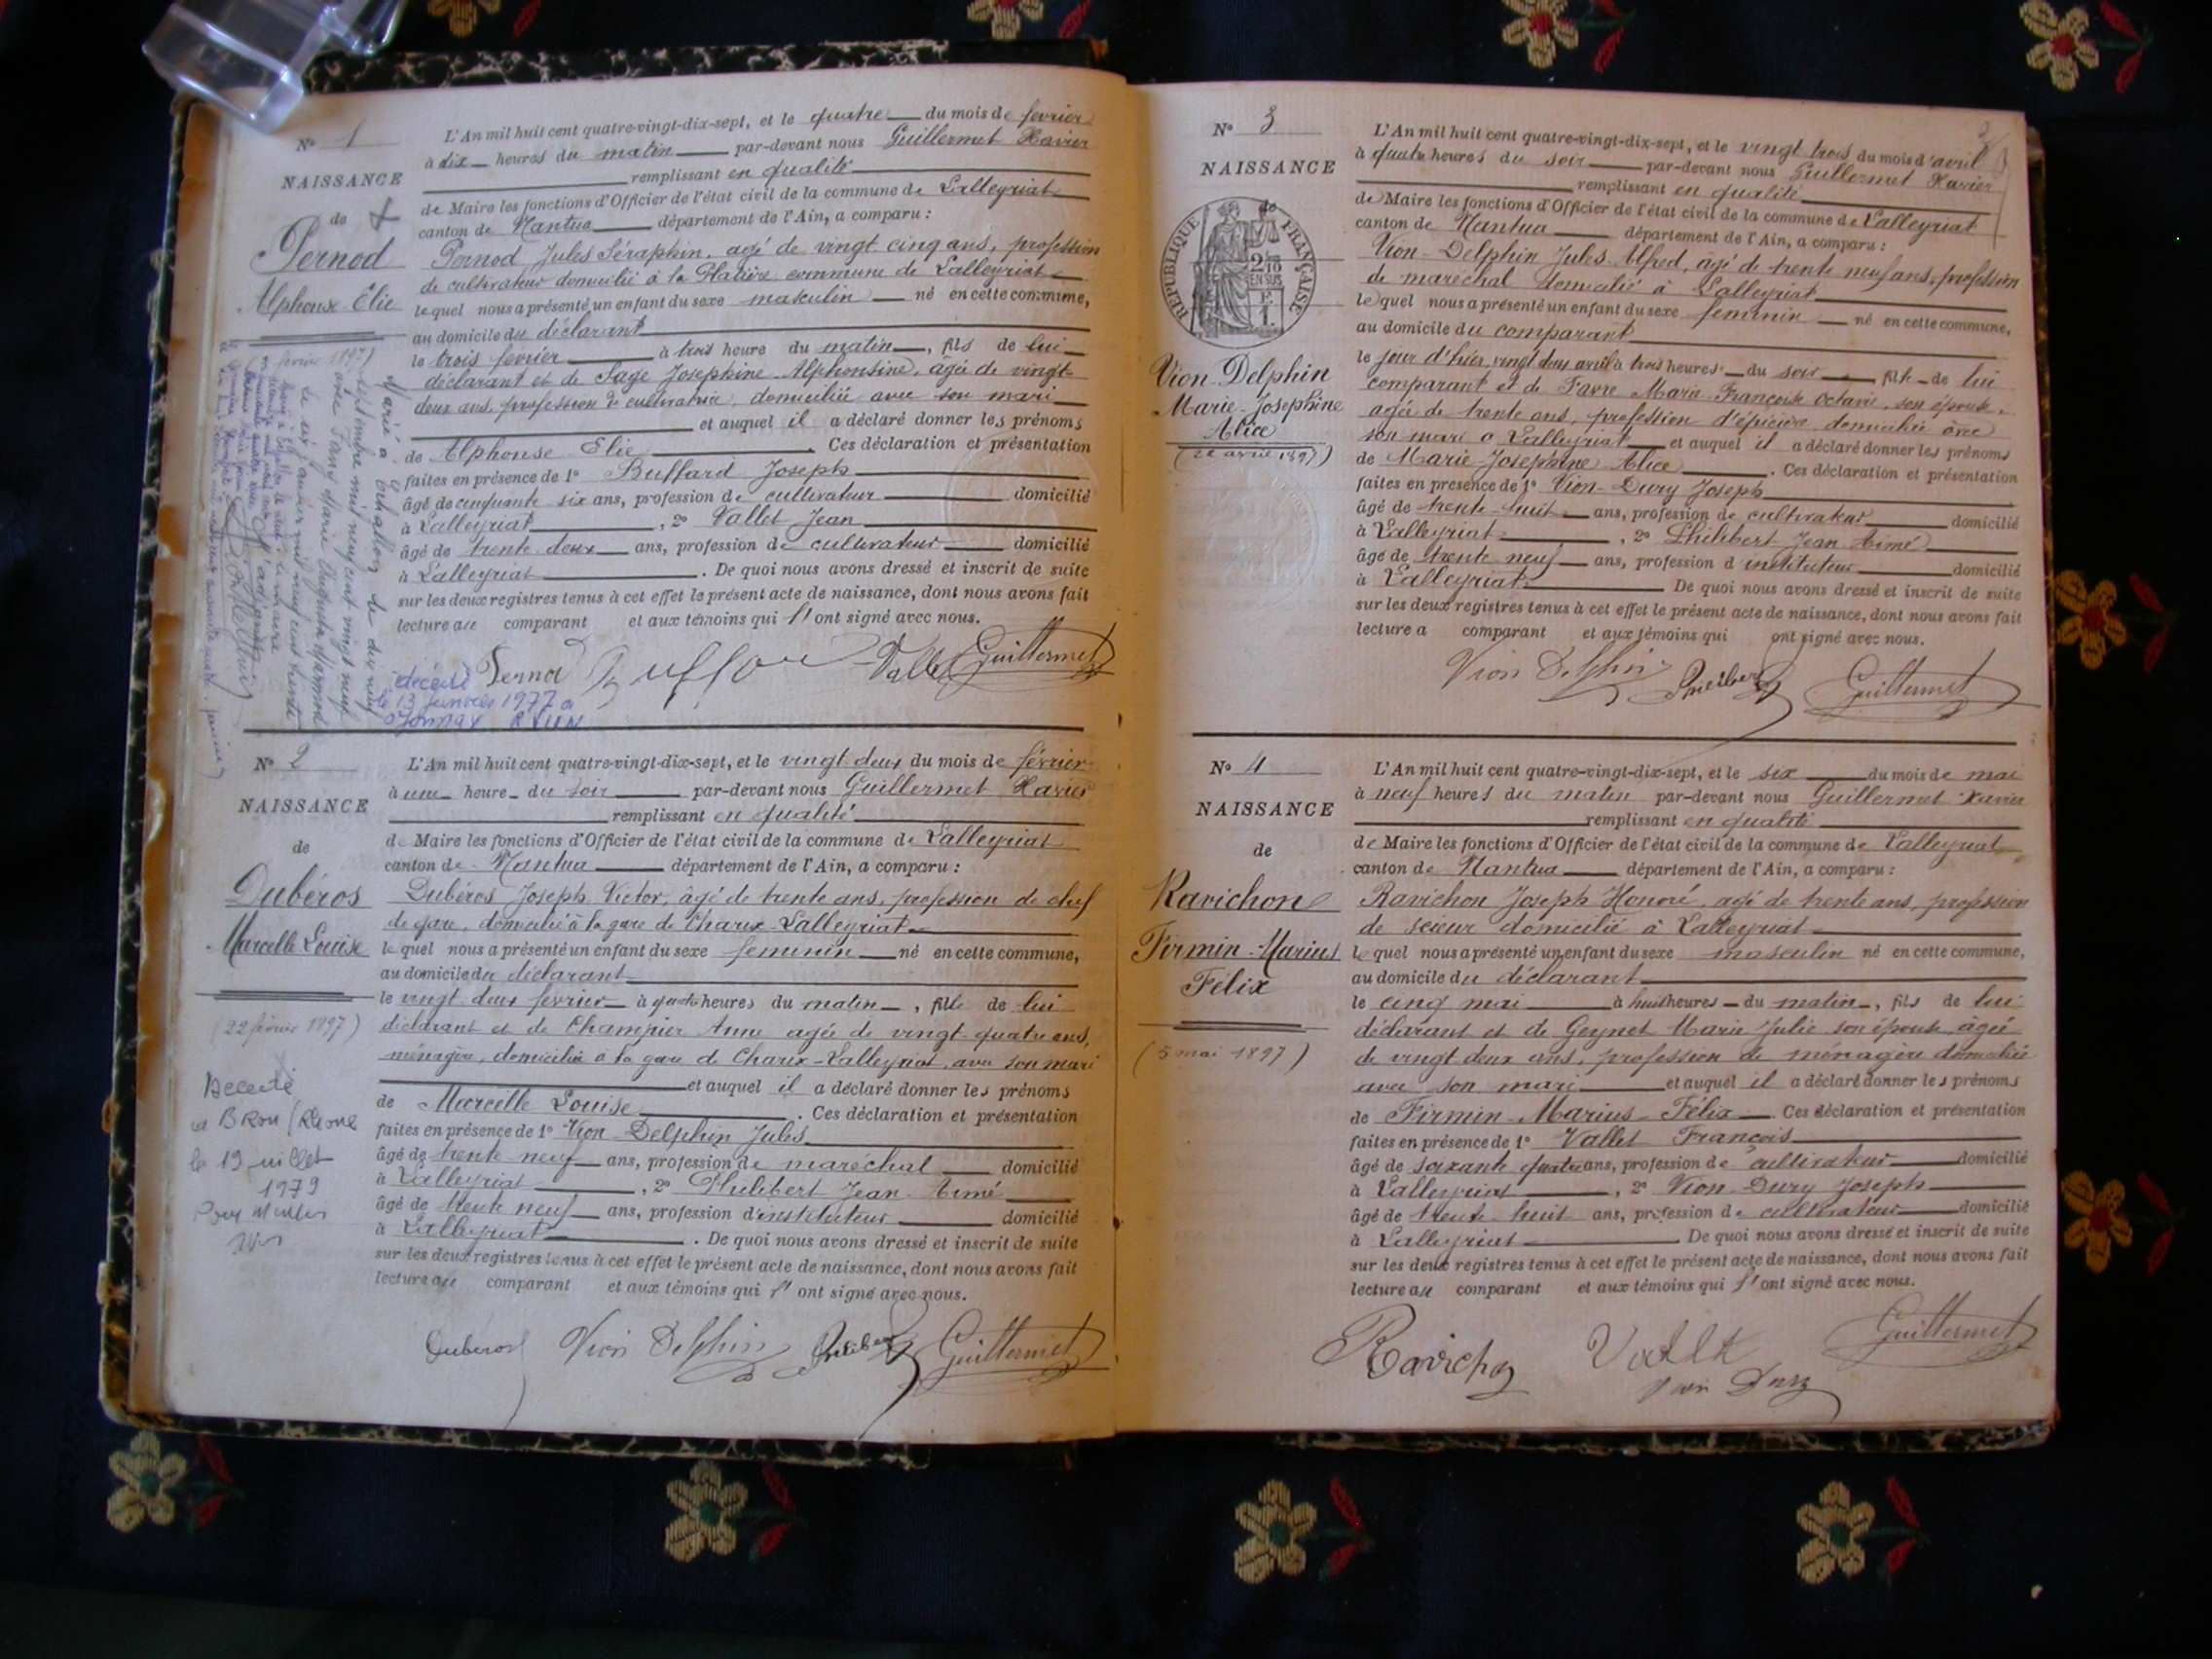 N° 1
NAISSANCE
de
Pernod
Alphonse Elie
L'An mil huit cent quatre-vingt-dix-sept, et le quatre du mois de fevrier
à dix heures du matin par-devant nous Guillermet Xavier
remplissant en qualité
de Maire les fonctions d'Officier de l'état civil de la commune de Lalleyriat
canton de Nantua département de l'Ain, a comparu :
Pernod Jules Séraphin, agé de vingt cinq ans, profession
de cultivateur domicilié à la Platière commune de Lalleyriat
lequel nous a présenté un enfant du sexe masculin né en cette commune,
au domicile du déclarant
le trois fevrier à trois heure du matin, fils de lui
déclarant et de Sage Josephine Alphonsine, âgée de vingt
deux ans, profession de cultivatrice, domiciliée avec son mari
et auquel il a déclaré donner les prénoms
de Alphonse Elie Ces déclaration et présentation
faites en présence de 1° Buffard Joseph
âgé de cinquante six ans, profession de cultivateur domicilié
à Lalleyriat, 2° Vallet Jean
âgé de trente deux ans, profession de cultivateur domicilié
à Lalleyriat. De quoi nous avons dressé et inscrit de suite
sur les deux registres tenus à cet effet le présent acte de naissance, dont nous avons fait
lecture au comparant et aux témoins qui l'ont signé avec nous.
Guillermet
décédé
le 13 janvier 1977 a
Oyonnax
Marié à Echallon le dix neuf
septembre mil neuf cent vingt neuf
N° 2
NAISSANCE
de
Dubéros
Marcelle Louise
(22 février 1897)
Décédée
à Bron (Rhône
le 19 juillet
1979
L'An mil huit cent quatre-vingt-dix-sept, et le vingt deux du mois de février
à une heure du soir par-devant nous Guillermet Xavier
remplissant en qualité
de Maire les fonctions d'Officier de l'état civil de la commune de Lalleyriat
canton de Nantua département de l'Ain, a comparu :
Dubéros Joseph Victor, âgé de trente ans, profession de chef
de gare, domicilié à la gare de Charix-Lalleyriat
lequel nous a présenté un enfant du sexe feminin né en cette commune,
au domicile du déclarant
le vingt deux fevrier à quatre heures du matin, fille de lui
déclarant et de Champier Anne agée de vingt quatre ans,
ménagère, domiciliée à la gare de Charix-Lalleyriat, avec son mari
et auquel il a déclaré donner les prénoms
de Marcelle Louise. Ces déclaration et présentation
faites en présence de 1° Vion-Delphin Jules
âgé de trente neuf ans, profession de maréchal domicilié
à Lalleyriat, 2° Philibert Jean Aimé
âgé de trente neuf ans, profession d'instituteur domicilié
à Lalleyriat. De quoi nous avons dressé et inscrit de suite
sur les deux registres tenus à cet effet le présent acte de naissance, dont nous avons fait
lecture au comparant et aux témoins qui l'ont signé avec nous.
Dubéros Vion Delphin Philibert Guillermet
N° 3
NAISSANCE
de
RÉPUBLIQUE FRANÇAISE
2/10
EN SUS
Vion-Delphin
Marie-Josephine
Alice
(22 avril 1897)
L'An mil huit cent quatre-vingt-dix-sept, et le vingt trois du mois d'avril
à quatre heures du soir par-devant nous Guillermet Xavier
remplissant en qualité
de Maire les fonctions d'Officier de l'état civil de la commune de Lalleyriat
canton de Nantua département de l'Ain, a comparu :
Vion-Delphin Jules Alfred, âgé de trente neuf ans, profession
de maréchal domicilié à Lalleyriat
lequel nous a présenté un enfant du sexe feminin né en cette commune,
au domicile du comparant
le jour d'hier, vingt deux avril à trois heures du soir, fille de lui
comparant et de Favre Marie Françoise Octavie, son épouse,
agée de trente ans, profession d'épicière, domiciliée avec
son mari à Lalleyriat et auquel il a déclaré donner les prénoms
de Marie Josephine Alice. Ces déclaration et présentation
faites en présence de 1° Vion-Dury Joseph
âgé de trente huit ans, profession de cultivateur domicilié
à Lalleyriat, 2° Philibert Jean Aimé
âgé de trente neuf ans, profession d'instituteur domicilié
à Lalleyriat De quoi nous avons dressé et inscrit de suite
sur les deux registres tenus à cet effet le présent acte de naissance, dont nous avons fait
lecture a comparant et aux témoins qui ont signé avec nous.
Vion Delphin Philibert Guillermet
N° 4
NAISSANCE
de
Ravichon
Firmin-Marius
Félix
(5 mai 1897)
L'An mil huit cent quatre-vingt-dix-sept, et le six du mois de mai
à neuf heures du matin par-devant nous Guillermet Xavier
remplissant en qualité
de Maire les fonctions d'Officier de l'état civil de la commune de Lalleyriat
canton de Nantua département de l'Ain, a comparu :
Ravichon Joseph Honoré, agé de trente ans, profession
de scieur domicilié à Lalleyriat
lequel nous a présenté un enfant du sexe masculin né en cette commune,
au domicile du déclarant
le cinq mai à huit heures du matin, fils de lui
déclarant et de Geynet Marie Julie son épouse âgée
de vingt deux ans, profession de ménagère domiciliée
avec son mari et auquel il a déclaré donner les prénoms
de Firmin-Marius-Félix. Ces déclaration et présentation
faites en présence de 1° Vallet François
âgé de soixante quatre ans, profession de cultivateur domicilié
à Lalleyriat, 2° Vion-Dury Joseph
âgé de trente huit ans, profession de cultivateur domicilié
à Lalleyriat De quoi nous avons dressé et inscrit de suite
sur les deux registres tenus à cet effet le présent acte de naissance, dont nous avons fait
lecture au comparant et aux témoins qui l'ont signé avec nous.
Ravichon Vallet Guillermet
Vion Dury